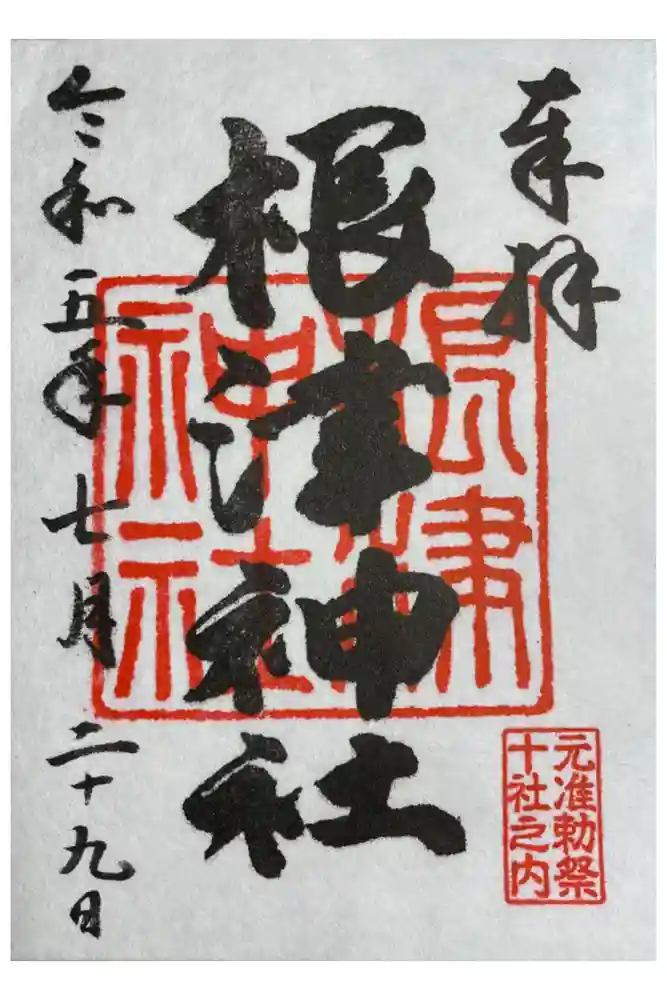 奉拝
根津神社
根津
神社
元准勅祭
十社之内
令和五年七月二十九日